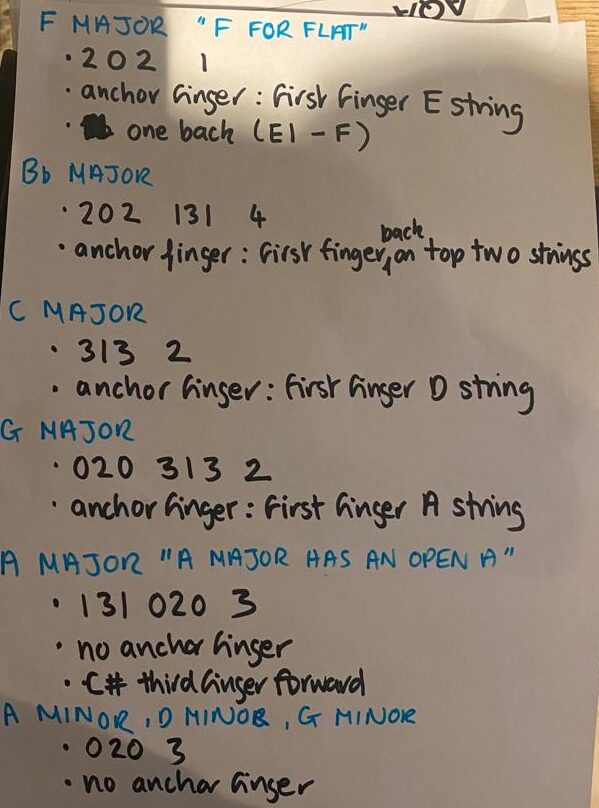 AQA
F MAJOR "F FOR FLAT"
· 202 1
· anchor finger : first finger E string
· one back (E1 - F)
Bb MAJOR
· 202 131 4
· anchor finger : first finger back on top two strings
C MAJOR
· 313 2
· anchor finger : first finger D string
G MAJOR
· 020 313 2
· anchor finger : first finger A string
A MAJOR "A MAJOR HAS AN OPEN A"
· 131 020 3
· no anchor finger
· C# third finger forward
A MINOR, D MINOR, G MINOR
· 020 3
· no anchor finger